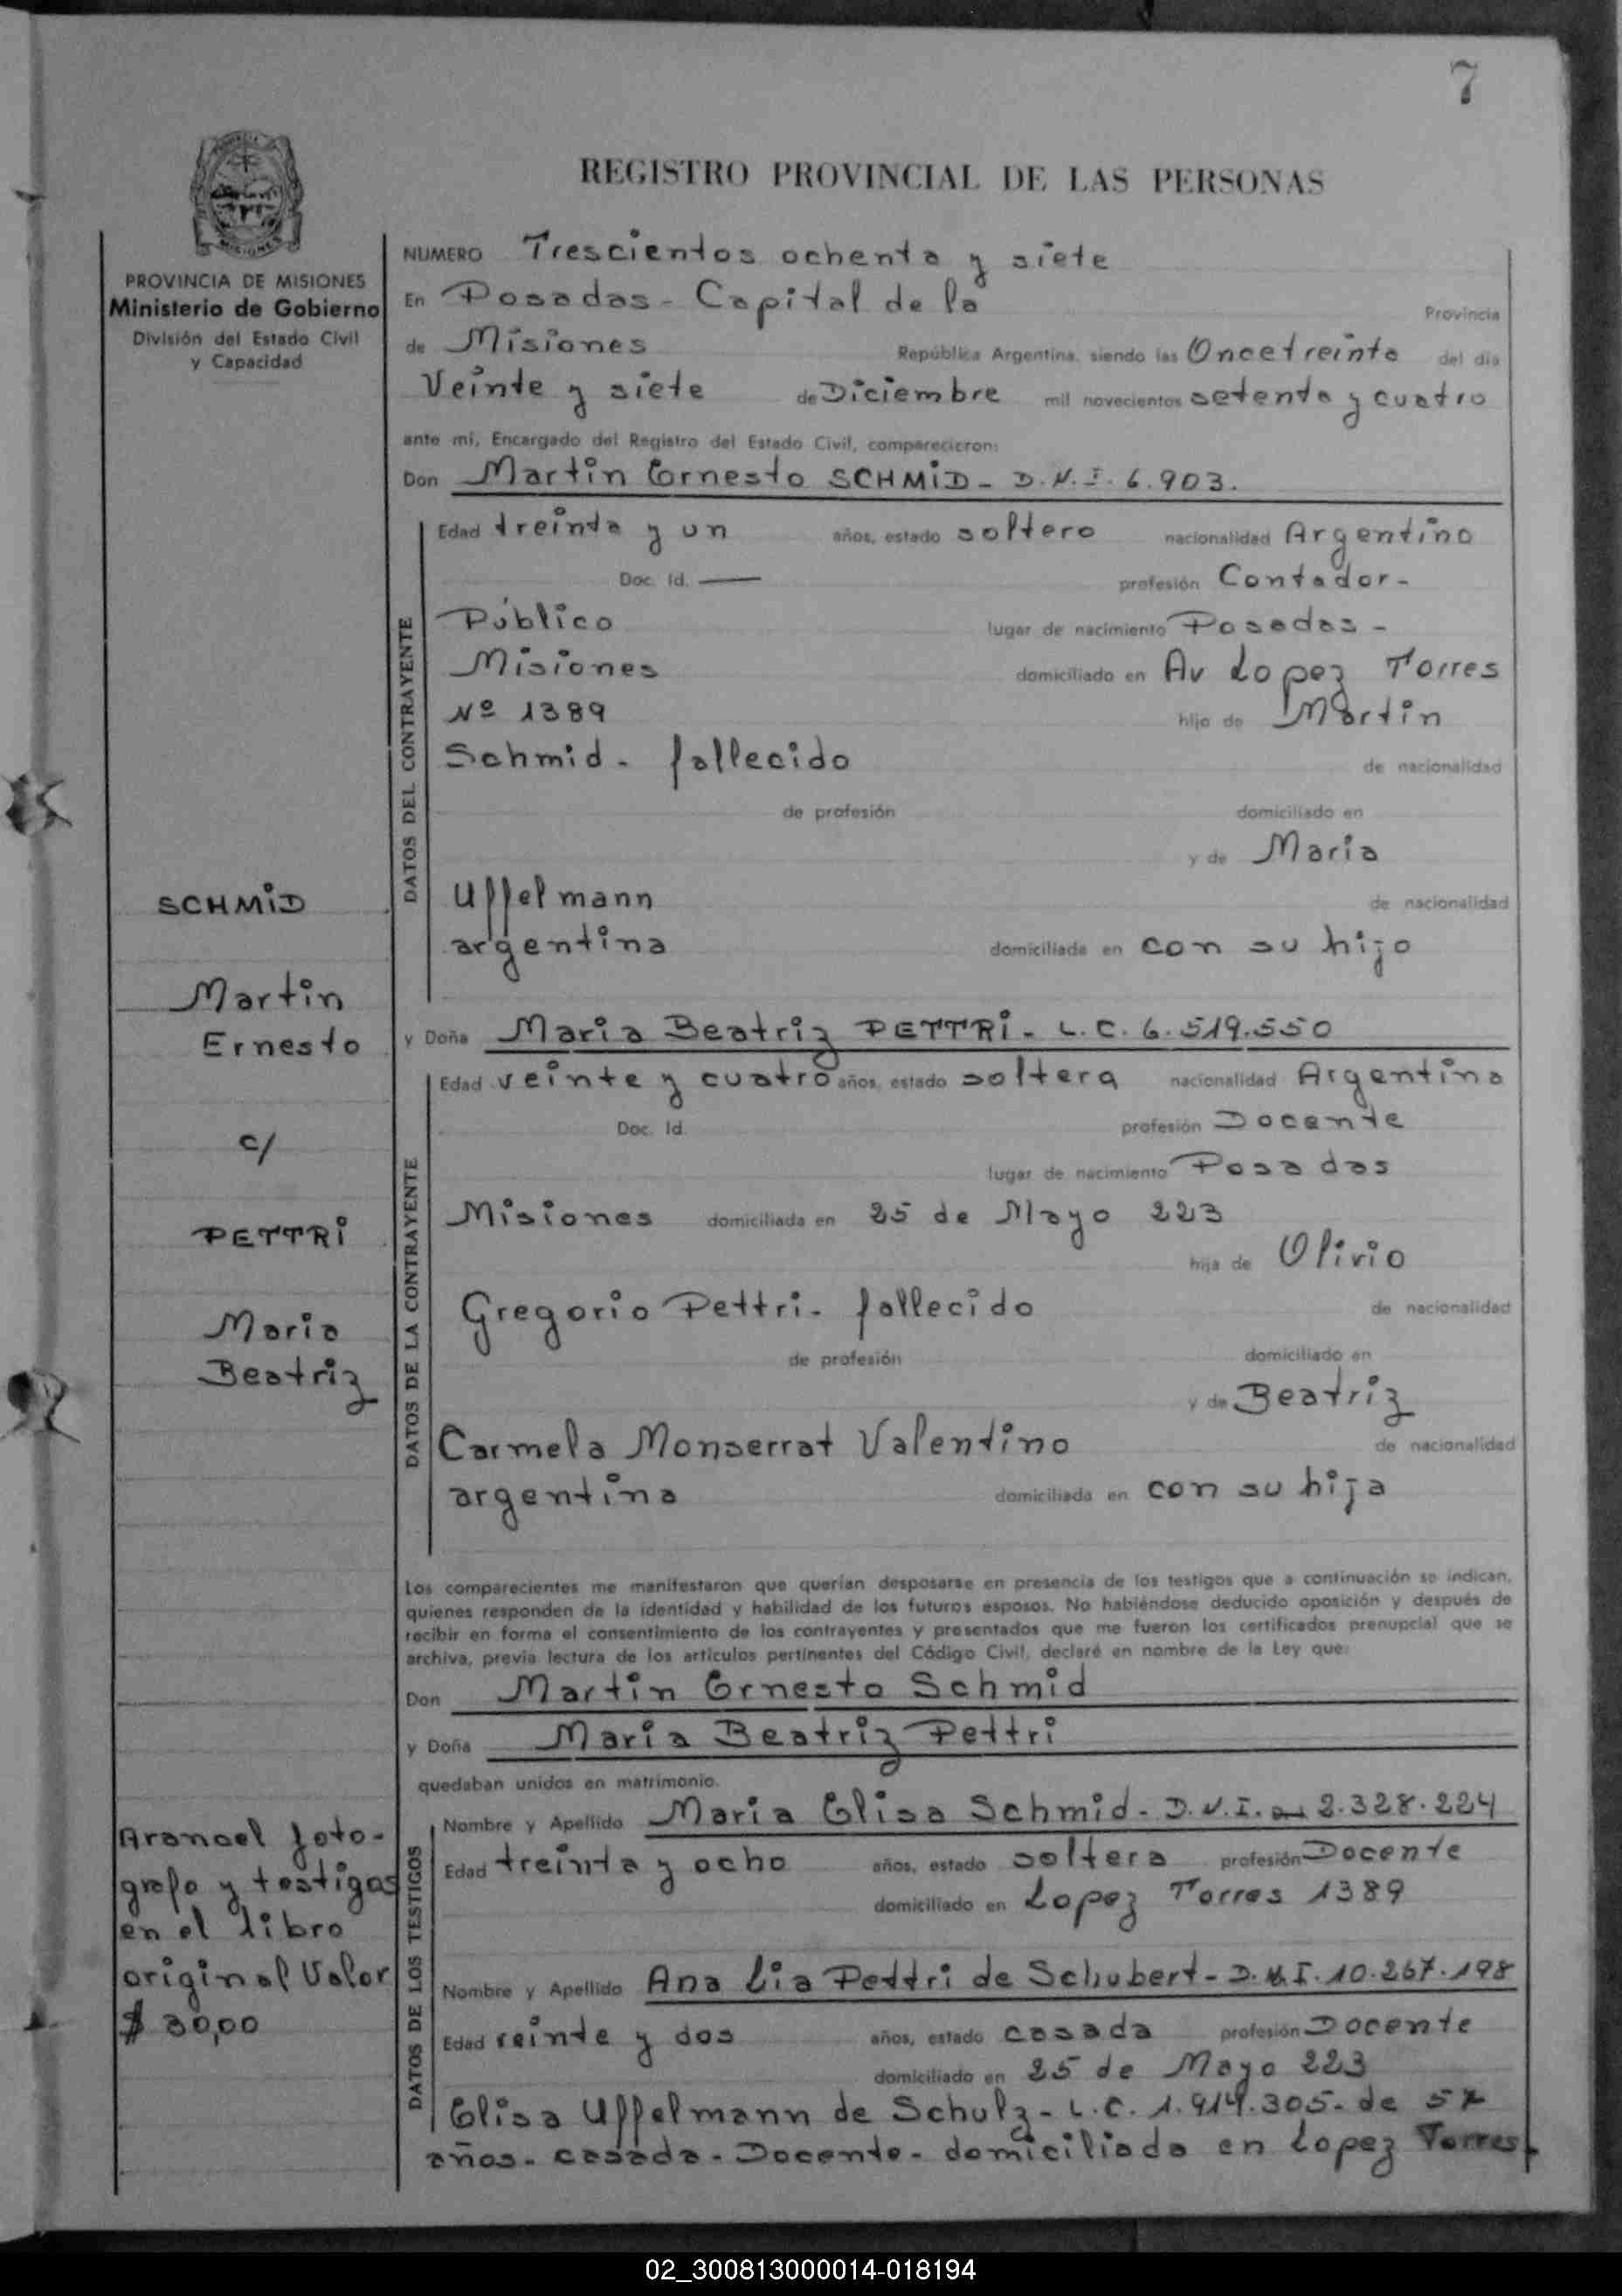 7
REGISTRO PROVINCIAL DE LAS PERSONAS
MISIONES
PROVINCIA DE MISIONES
Ministerio de Gobierno
División del Estado Civil
y Capacidad
NUMERO Trescientos ochenta y siete
En Posadas - Capital de la Provincia
de Misiones República Argentina, siendo las Once treinta del día
Veinte y siete de Diciembre mil novecientos setenta y cuatro
ante mí, Encargado del Registro del Estado Civil, comparecieron:
Don Martin Ernesto SCHMID - D.N.I. 6.903.
DATOS DEL CONTRAYENTE
Edad treinta y un años, estado soltero nacionalidad Argentino
Doc. Id. — profesión Contador -
Público lugar de nacimiento Posadas -
Misiones domiciliado en Av Lopez Torres
Nº 1389 hijo de Martin
Schmid - fallecido de nacionalidad
de profesión domiciliado en
y de Maria
Uffelmann de nacionalidad
argentina domiciliada en con su hijo
SCHMID
Martin
Ernesto
c/
PETTRI
Maria
Beatriz
y Doña Maria Beatriz PETTRI - L.C. 6.519.550
DATOS DE LA CONTRAYENTE
Edad veinte y cuatro años, estado soltera nacionalidad Argentina
Doc. Id. profesión Docente
lugar de nacimiento Posadas
Misiones domiciliada en 25 de Mayo 223
hija de Olivio
Gregorio Pettri - fallecido de nacionalidad
de profesión domiciliado en
y de Beatriz
Carmela Monserrat Valentino de nacionalidad
argentina domiciliada en con su hija
Los comparecientes me manifestaron que querían desposarse en presencia de los testigos que a continuación se indican,
quienes responden de la identidad y habilidad de los futuros esposos. No habiéndose deducido oposición y después de
recibir en forma el consentimiento de los contrayentes y presentados que me fueron los certificados prenupcial que se
archiva, previa lectura de los artículos pertinentes del Código Civil, declaré en nombre de la Ley que:
Don Martin Ernesto Schmid
y Doña Maria Beatriz Pettri
quedaban unidos en matrimonio.
DATOS DE LOS TESTIGOS
Nombre y Apellido Maria Elisa Schmid - D.N.I. 2.328.224
Edad treinta y ocho años, estado soltera profesión Docente
domiciliado en Lopez Torres 1389
Nombre y Apellido Ana Lia Pettri de Schubert - D.N.I. 10.267.198
Edad veinte y dos años, estado casada profesión Docente
domiciliado en 25 de Mayo 223
Elisa Uffelmann de Schulz - L.C. 1.914.305 - de 57
años - casada - Docente - domiciliada en Lopez Torres
Arancel foto-
grafo y testigos
en el libro
original Valor
$ 30,00
02_300813000014-018194